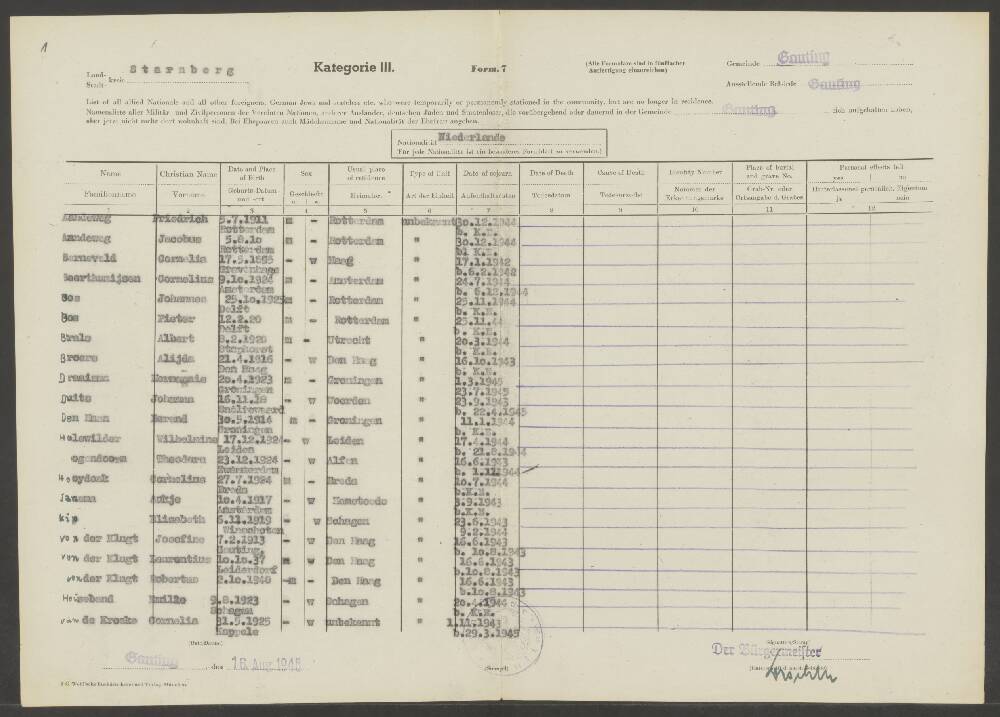 1
Land-
Stadt- kreis Starnberg
Kategorie III.
Form. 7
(Alle Formulare sind in fünffacher
Ausfertigung einzureichen)
Gemeinde Gauting
Ausstellende Behörde Gauting
List of all allied Nationals and all other foreigners, German Jews and stateless etc. who were temporarily or permanently stationed in the community, but are no longer in residence.
Namensliste aller Militär- und Zivilpersonen der Vereinten Nationen, anderer Ausländer, deutschen Juden und Staatenloser, die vorübergehend oder dauernd in der Gemeinde Gauting sich aufgehalten haben,
aber jetzt nicht mehr dort wohnhaft sind. Bei Ehepaaren auch Mädchenname und Nationalität der Ehefrau angeben.
Nationalität Niederlande
(Für jede Nationalität ist ein besonderes Formblatt zu verwenden)
Name Christian Name Date and Place of Birth Sex Usual place of residence Type of Unit Date of sojourn Date of Death Cause of Death Identity Number Place of burial and grave No. Personal effects left yes no
Familienname Vorname Geburts-Datum und -ort Geschlecht Heimatort Art der Einheit Aufenthaltsdaten Todesdatum Todesursache Nummer der Erkennungsmarke Grab-Nr. oder Ortsangabe d. Grabes Hinterlassenes persönlich. Eigentum ja nein
1 2 3 4 5 6 7 8 9 10 11 12
Aandeweg Friedrich 5.7.1911 m - Rotterdam unbekannt 30.12.1944
Rotterdam b. K.E.
Aandeweg Jacobus 5.8.10 m - Rotterdam " 30.12.1944
Rotterdam b. K.E.
Barneveld Cornelia - w Haag " 17.1.1942
Gravenhage b.6.2.1942
Cornelius 9.10.1924 m - Amsterdam " 24.7.1944
Amsterdam b. 6.12.1944
Bos Johannes 25.10.1925 m - Rotterdam " 25.11.1944
Delft b. K.E.
Bos Pieter 12.2.20 m - Rotterdam " 25.11.44
Delft b. K.E.
Albert 8.2.1920 m - Utrecht " 20.3.1944
Staphorst b. K.E.
Broere Alijda 21.4.1916 - w Den Haag " 16.10.1943
Den Haag b. K.E.
20.4.1923 m - Groningen " 1.3.1945
Groningen 23.7.1945
Duits Johanna 16.11.18 - w Woerden " 23.9.1943
b. 22.4.1945
Den Haan Berend 30.5.1914 m - Groningen " 11.1.1944
Groningen b. K.E.
Wilhelmine 17.12.1924 - w Leiden " 17.4.1944
Leiden b. 21.8.1944
Theodora 23.12.1924 - w Alfen " 16.6.1943
b. 1.11.1944
Cornelius 27.7.1924 m - Breda " 10.7.1944
Breda b.K.E.
Jansma 10.4.1917 - w " 3.9.1943
Amsterdam b.K.E.
Kip Elisabeth 6.11.1919 - w Schagen " 23.6.1943
Winschoten 9.2.1944
von der Klugt Josefine 7.2.1913 - w Den Haag " 16.6.1943
Gauting b. 10.8.1943
von der Klugt Laurentine 10.10.37 m w Den Haag " 16.6.1943
Leiderdorf b.10.8.1943
von der Klugt Robertus 2.10.1940 -m - Den Haag " 16.6.1943
b.10.8.1943
9.8.1923 - w Schagen " 20.4.1944
Schagen b. K.E.
van de Kroeke Cornelia 31.5.1925 - w unbekannt " 1.11.1943
Kappele b.29.3.1945
(Ort/Datum)
Gauting, den 16. Aug. 1948
(Stempel)
(Signature/Status)
Der Bürgermeister